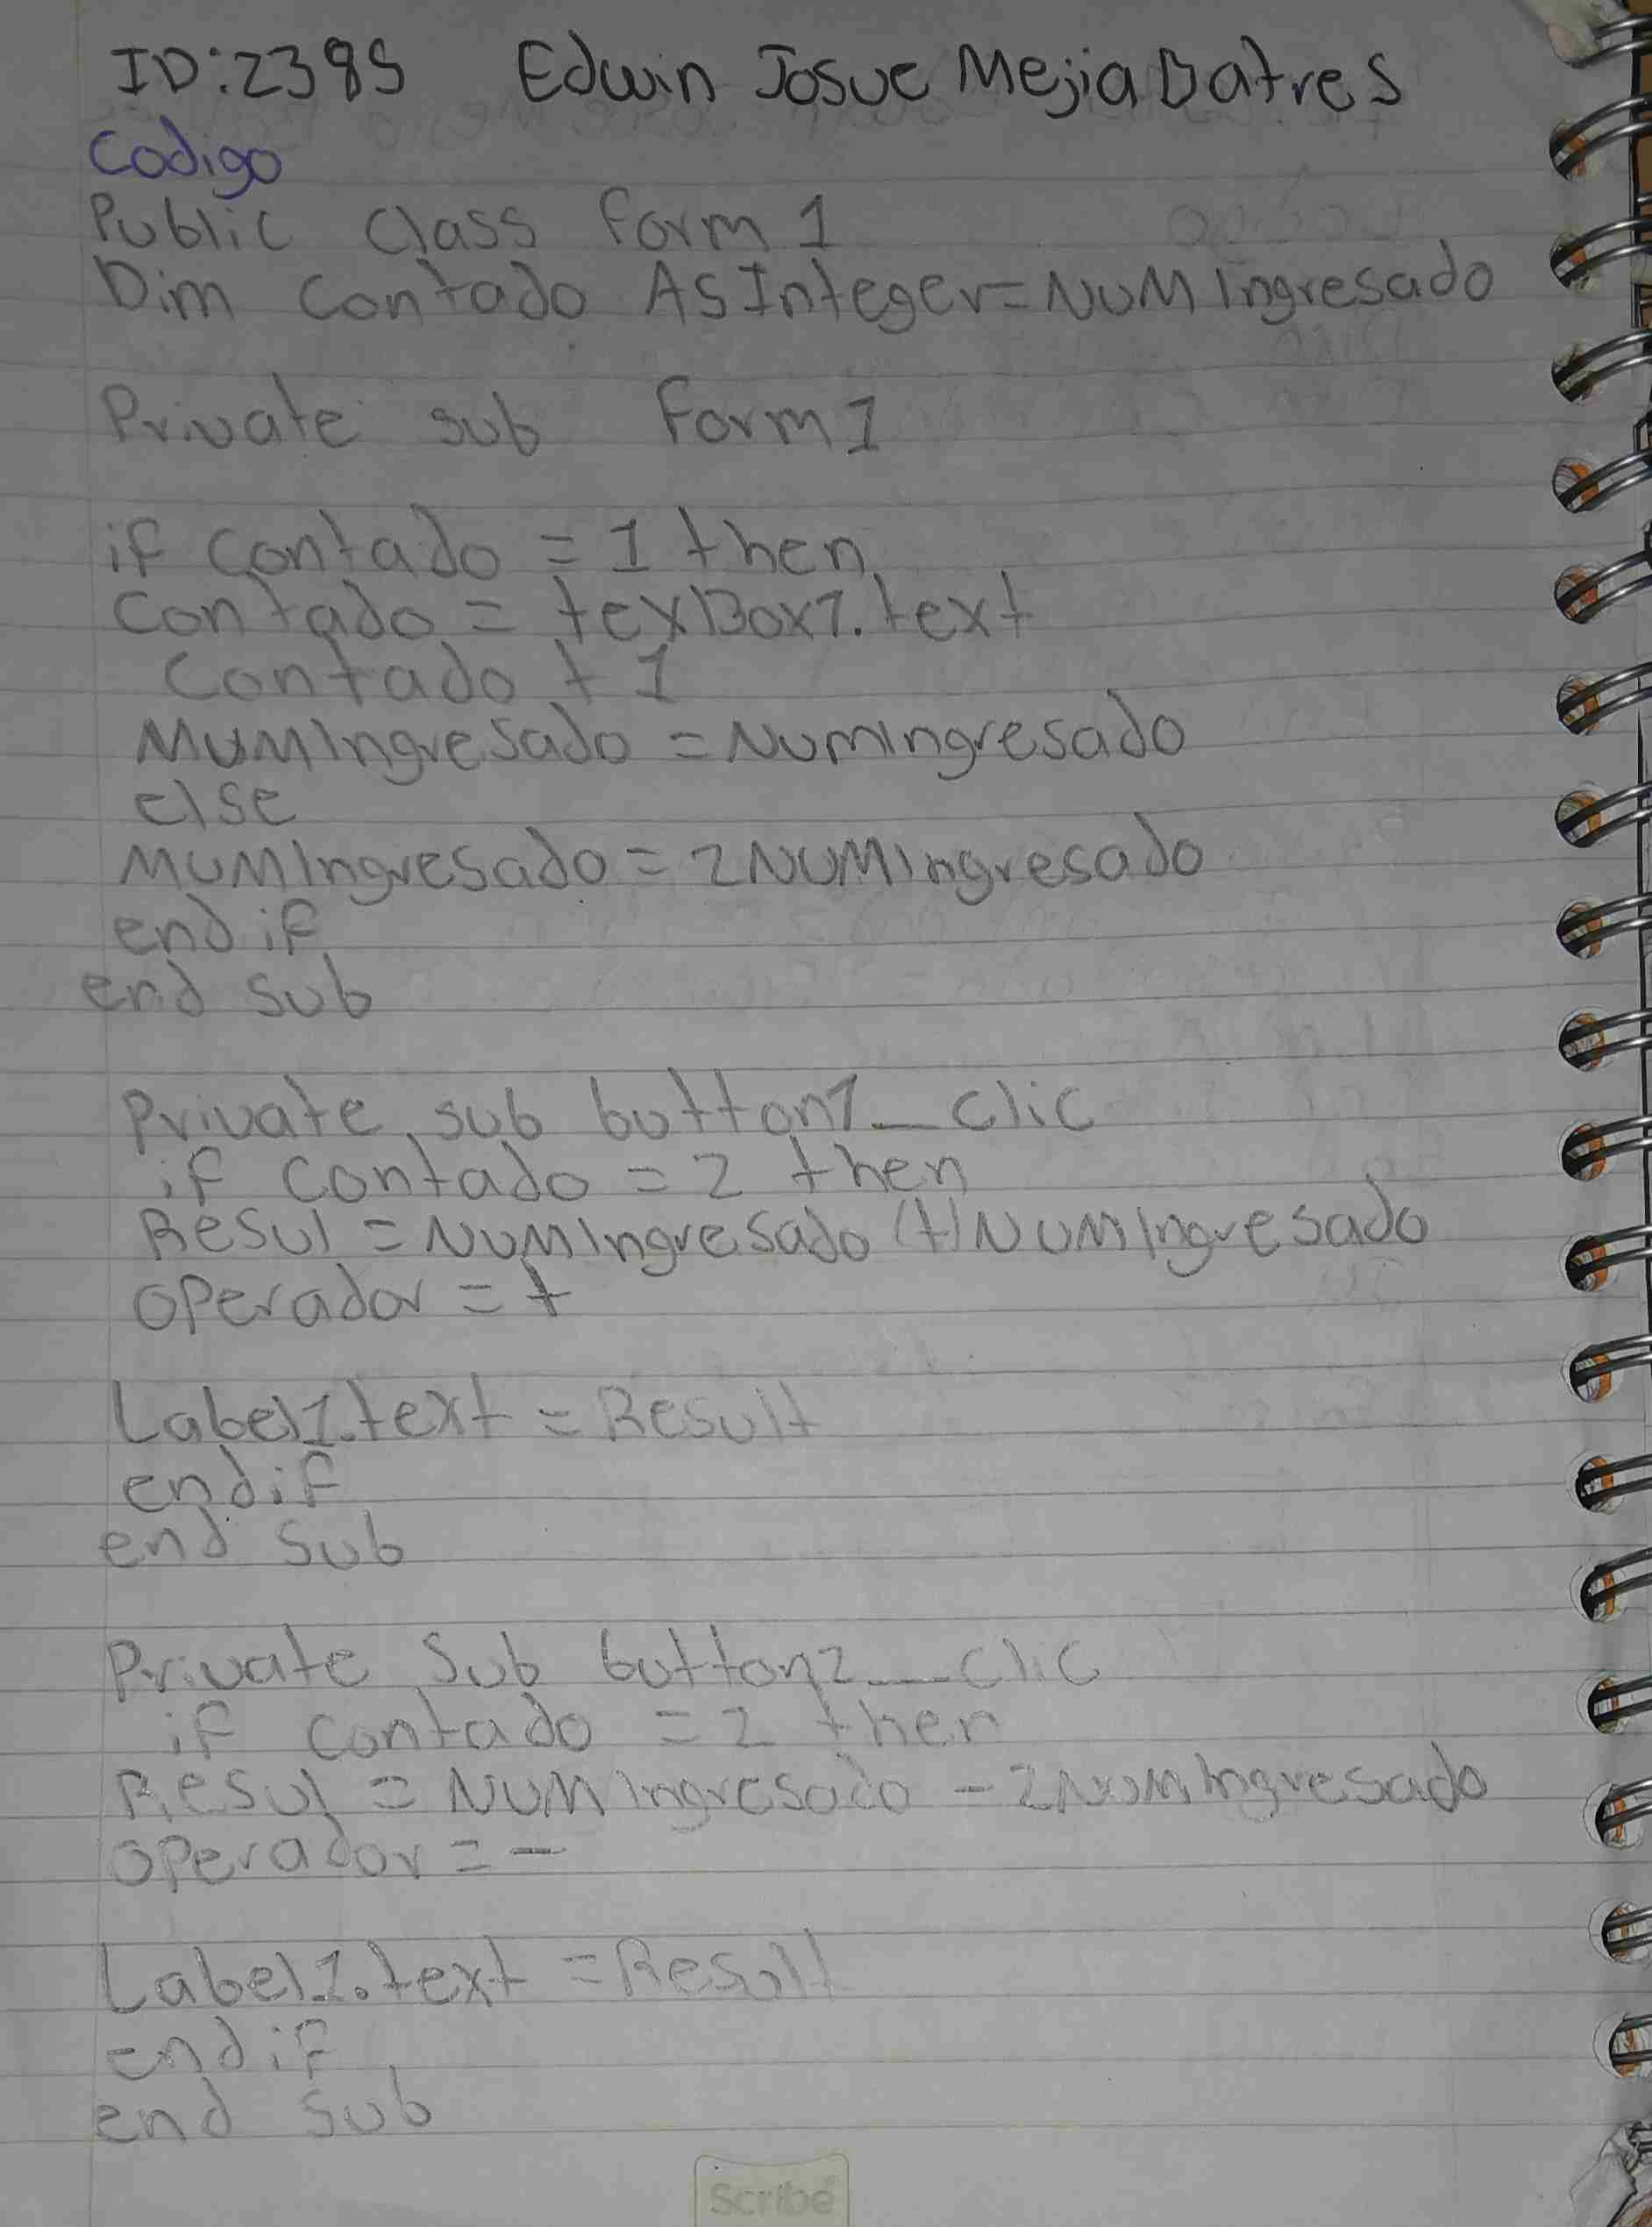 ID:2385 Edwin Josue Mejia Batres
Codigo
Public Class form 1
Dim Contado As Integer=NUM Ingresado
Private sub Form1
if contado = 1 then
Contado = texBox1.text
Contado + 1
MUMIngresado = NumIngresado
else
MUMIngresado = 2NUMIngresado
end if
end sub
Private sub button1_clic
if contado = 2 then
Resul = NUMIngresado (+) NUMIngresado
operador = +
Label1.text = Result
end if
end sub
Private Sub button2_clic
if contado = 2 then
Resul = NUMIngresado - 2NUMIngresado
operador = -
Label1.text = Result
end if
end sub
Scribe